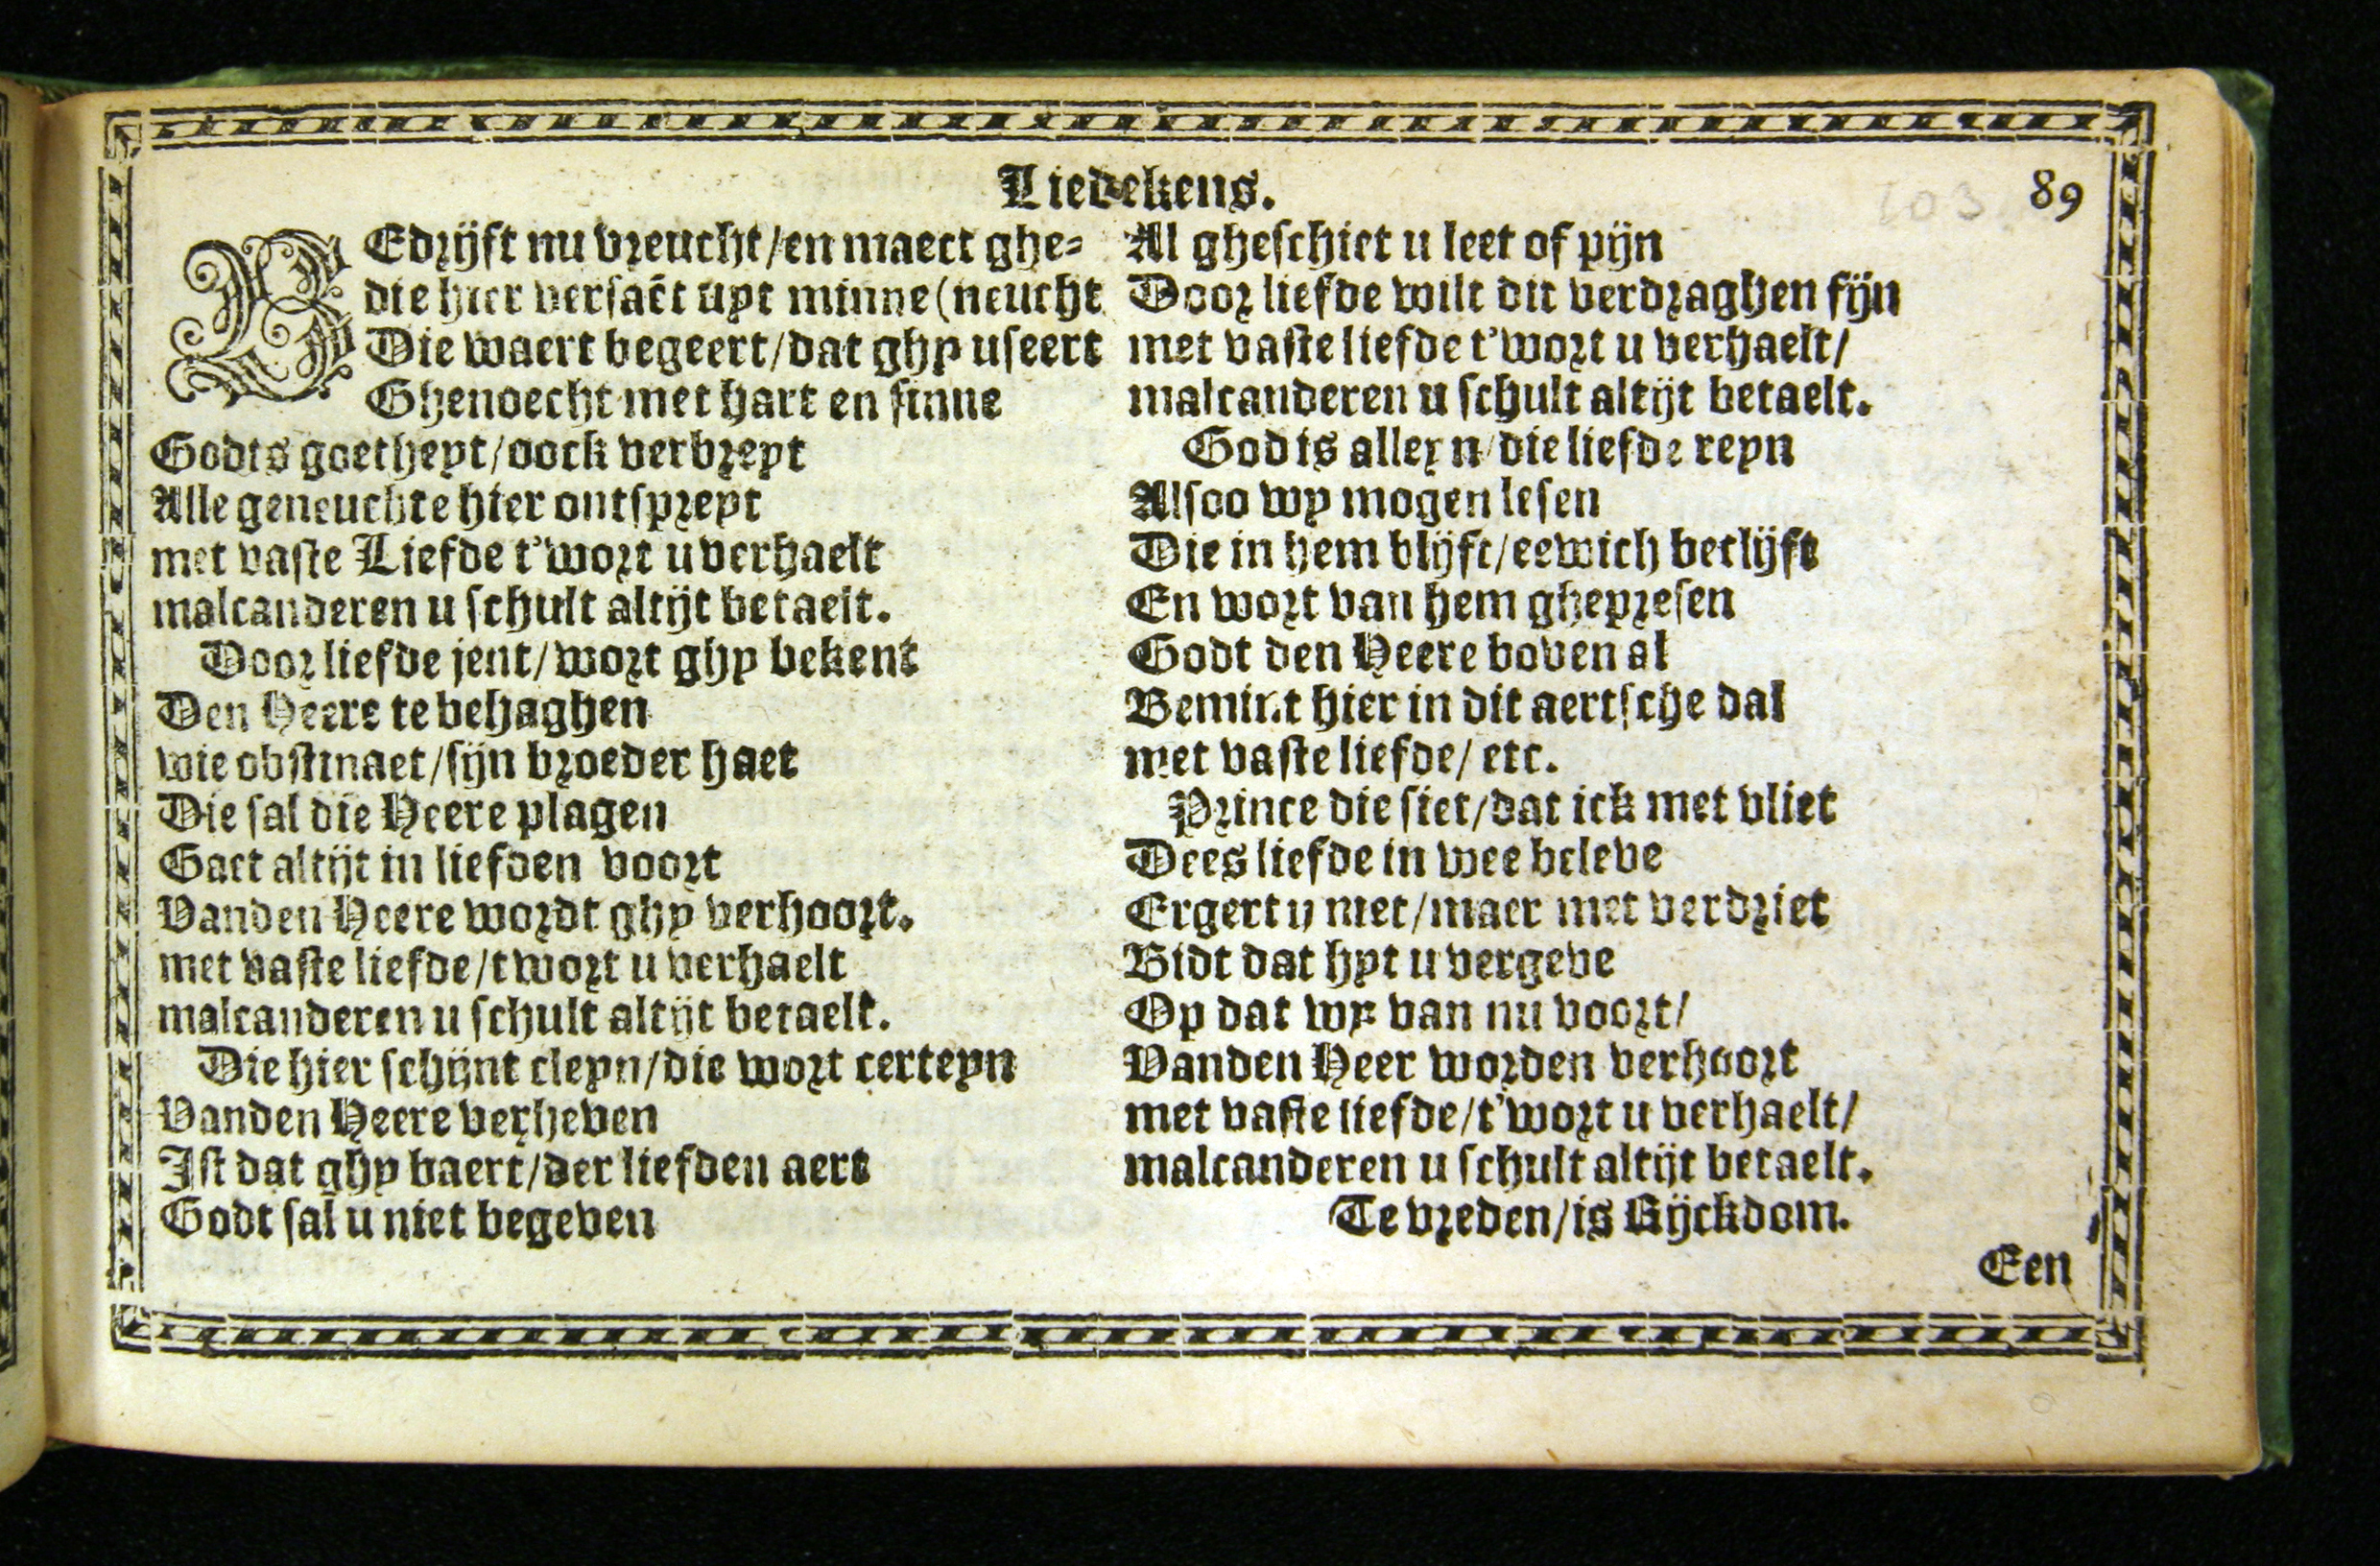 Liedekens.
89
BEdrijft nu vreucht/en maect ghe-
die hier versaēt uyt minne (neucht
Die waert begeert/dat ghy useert
Ghenoecht met hart en sinne
Godts goetheyt/oock verbreyt
Alle geneuchte hier ontspreyt
met vaste Liefde t'wort u verhaelt
malcanderen u schult altijt betaelt.
Door liefde jent/wort ghy bekent
Den Heere te behaghen
wie obstinaet/sijn broeder haet
Die sal die Heere plagen
Gaet altijt in liefden voort
Vanden Heere wordt ghy verhoort.
met vaste liefde/twort u verhaelt
malcanderen u schult altijt betaelt.
Die hier schijnt cleyn/die wort certeyn
Vanden Heere verheven
Ist dat ghy baert/der liefden aert
Godt sal u niet begeven
Al gheschiet u leet of pijn
Door liefde wilt dit verdraghen fijn
met vaste liefde t'wort u verhaelt/
malcanderen u schult altijt betaelt.
God is alleyn/die liefde reyn
Alsoo wy mogen lesen
Die in hem blijft/eewich beclijft
En wort van hem ghepresen
Godt den Heere boven al
Bemint hier in dit aertsche dal
met vaste liefde/ etc.
Prince die siet/dat ick met vliet
Dees liefde in wee beleve
Ergert u niet/maer met verdriet
Bidt dat hyt u vergeve
Op dat wy van nu voort/
Vanden Heer worden verhoort
met vaste liefde/t'wort u verhaelt/
malcanderen u schult altijt betaelt.
Te vreden/is Rijckdom.
Een